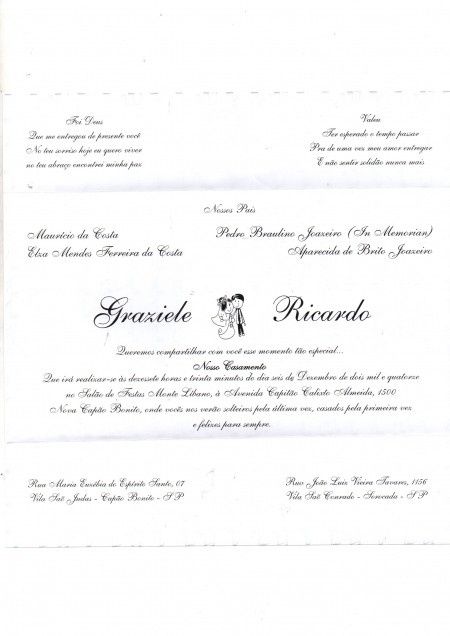 Foi Deus
Que me entregou de presente você
No teu sorriso hoje eu quero viver
no teu abraço encontrei minha paz
Valeu
Ter esperado o tempo passar
Pra de uma vez meu amor entregar
E não sentir solidão nunca mais
Nossos Pais
Maurício da Costa
Elza Mendes Ferreira da Costa
Pedro Braulino Joazeiro (In Memorian)
Aparecida de Brito Joazeiro
Graziele Ricardo
Queremos compartilhar com você esse momento tão especial...
Nosso Casamento
Que irá realizar-se às dezessete horas e trinta minutos do dia seis de Dezembro de dois mil e quatorze
no Salão de Festas Monte Líbano, à Avenida Capitão Calixto Almeida, 1500
Nova Capão Bonito, onde vocês nos verão solteiros pela última vez, casados pela primeira vez
e felizes para sempre.
Rua Maria Eusébia do Espírito Santo, 07
Vila São Judas - Capão Bonito - SP
Rua João Luiz Vieira Tavares, 1156
Vila São Conrado - Sorocaba - SP